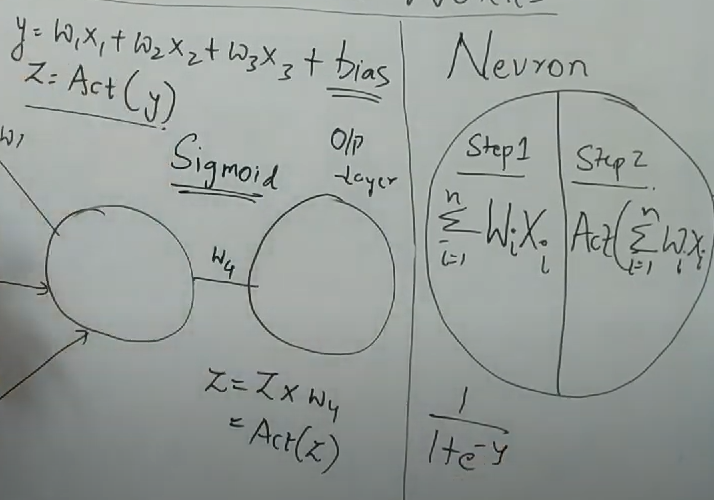 y = w₁x₁ + w₂x₂ + w₃x₃ + bias
Z = Act(y)
Sigmoid
O/P
layer
w₄
Z = Z × w₄
= Act(Z)
Neuron
Step 1
Step 2
n
Σ WᵢXᵢ
i=1
n
Act(Σ Wᵢxᵢ
i=1
1
1+e⁻ʸ